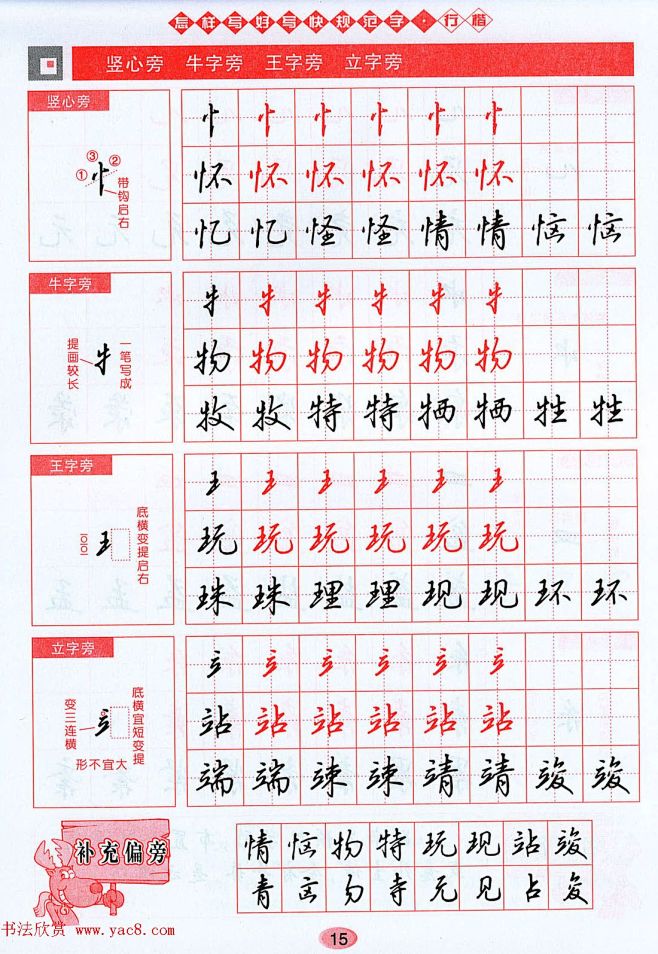 怎样写好写快规范字·行楷
竖心旁 牛字旁 王字旁 立字旁
竖心旁
③
① ②
带钩启右
忄 忄 忄 忄 忄 忄
怀 怀 怀 怀 怀 怀
忆 忆 怪 怪 情 情 恼 恼
牛字旁
提画较长
一笔写成
牜 牜 牜 牜 牜 牜
物 物 物 物 物 物
牧 牧 特 特 牺 牺 牲 牲
王字旁
底横变提启右
王 王 王 王 王 王
玩 玩 玩 玩 玩 玩
珠 珠 理 理 现 现 环 环
立字旁
变三连横
底横宜短变提
形不宜大
立 立 立 立 立 立
站 站 站 站 站 站
端 端 竦 竦 靖 靖 竣 竣
补充偏旁
情 恼 物 特 玩 现 站 竣
青 㐫 勿 寺 元 见 占 夋
书法欣赏 www.yac8.com
15